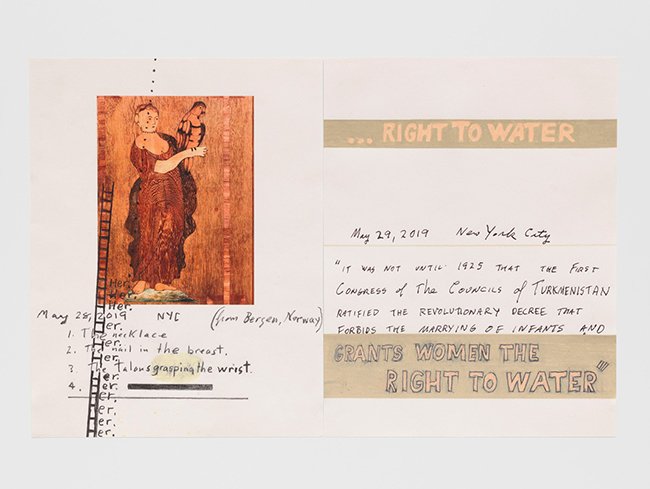 Her.
Her.
Her.
May 28, 2019 NYC (from Bergen, Norway)
er.
1. The necklace
er.
2. The nail in the breast.
er.
3. The talons grasping the wrist.
4. er.
er.
er.
er.
er.
... RIGHT TO WATER
May 29, 2019 New York City
"IT WAS NOT UNTIL 1925 THAT THE FIRST
CONGRESS OF THE COUNCILS OF TURKMENISTAN
RATIFIED THE REVOLUTIONARY DECREE THAT
FORBIDS THE MARRYING OF INFANTS AND
GRANTS WOMEN THE
RIGHT TO WATER"